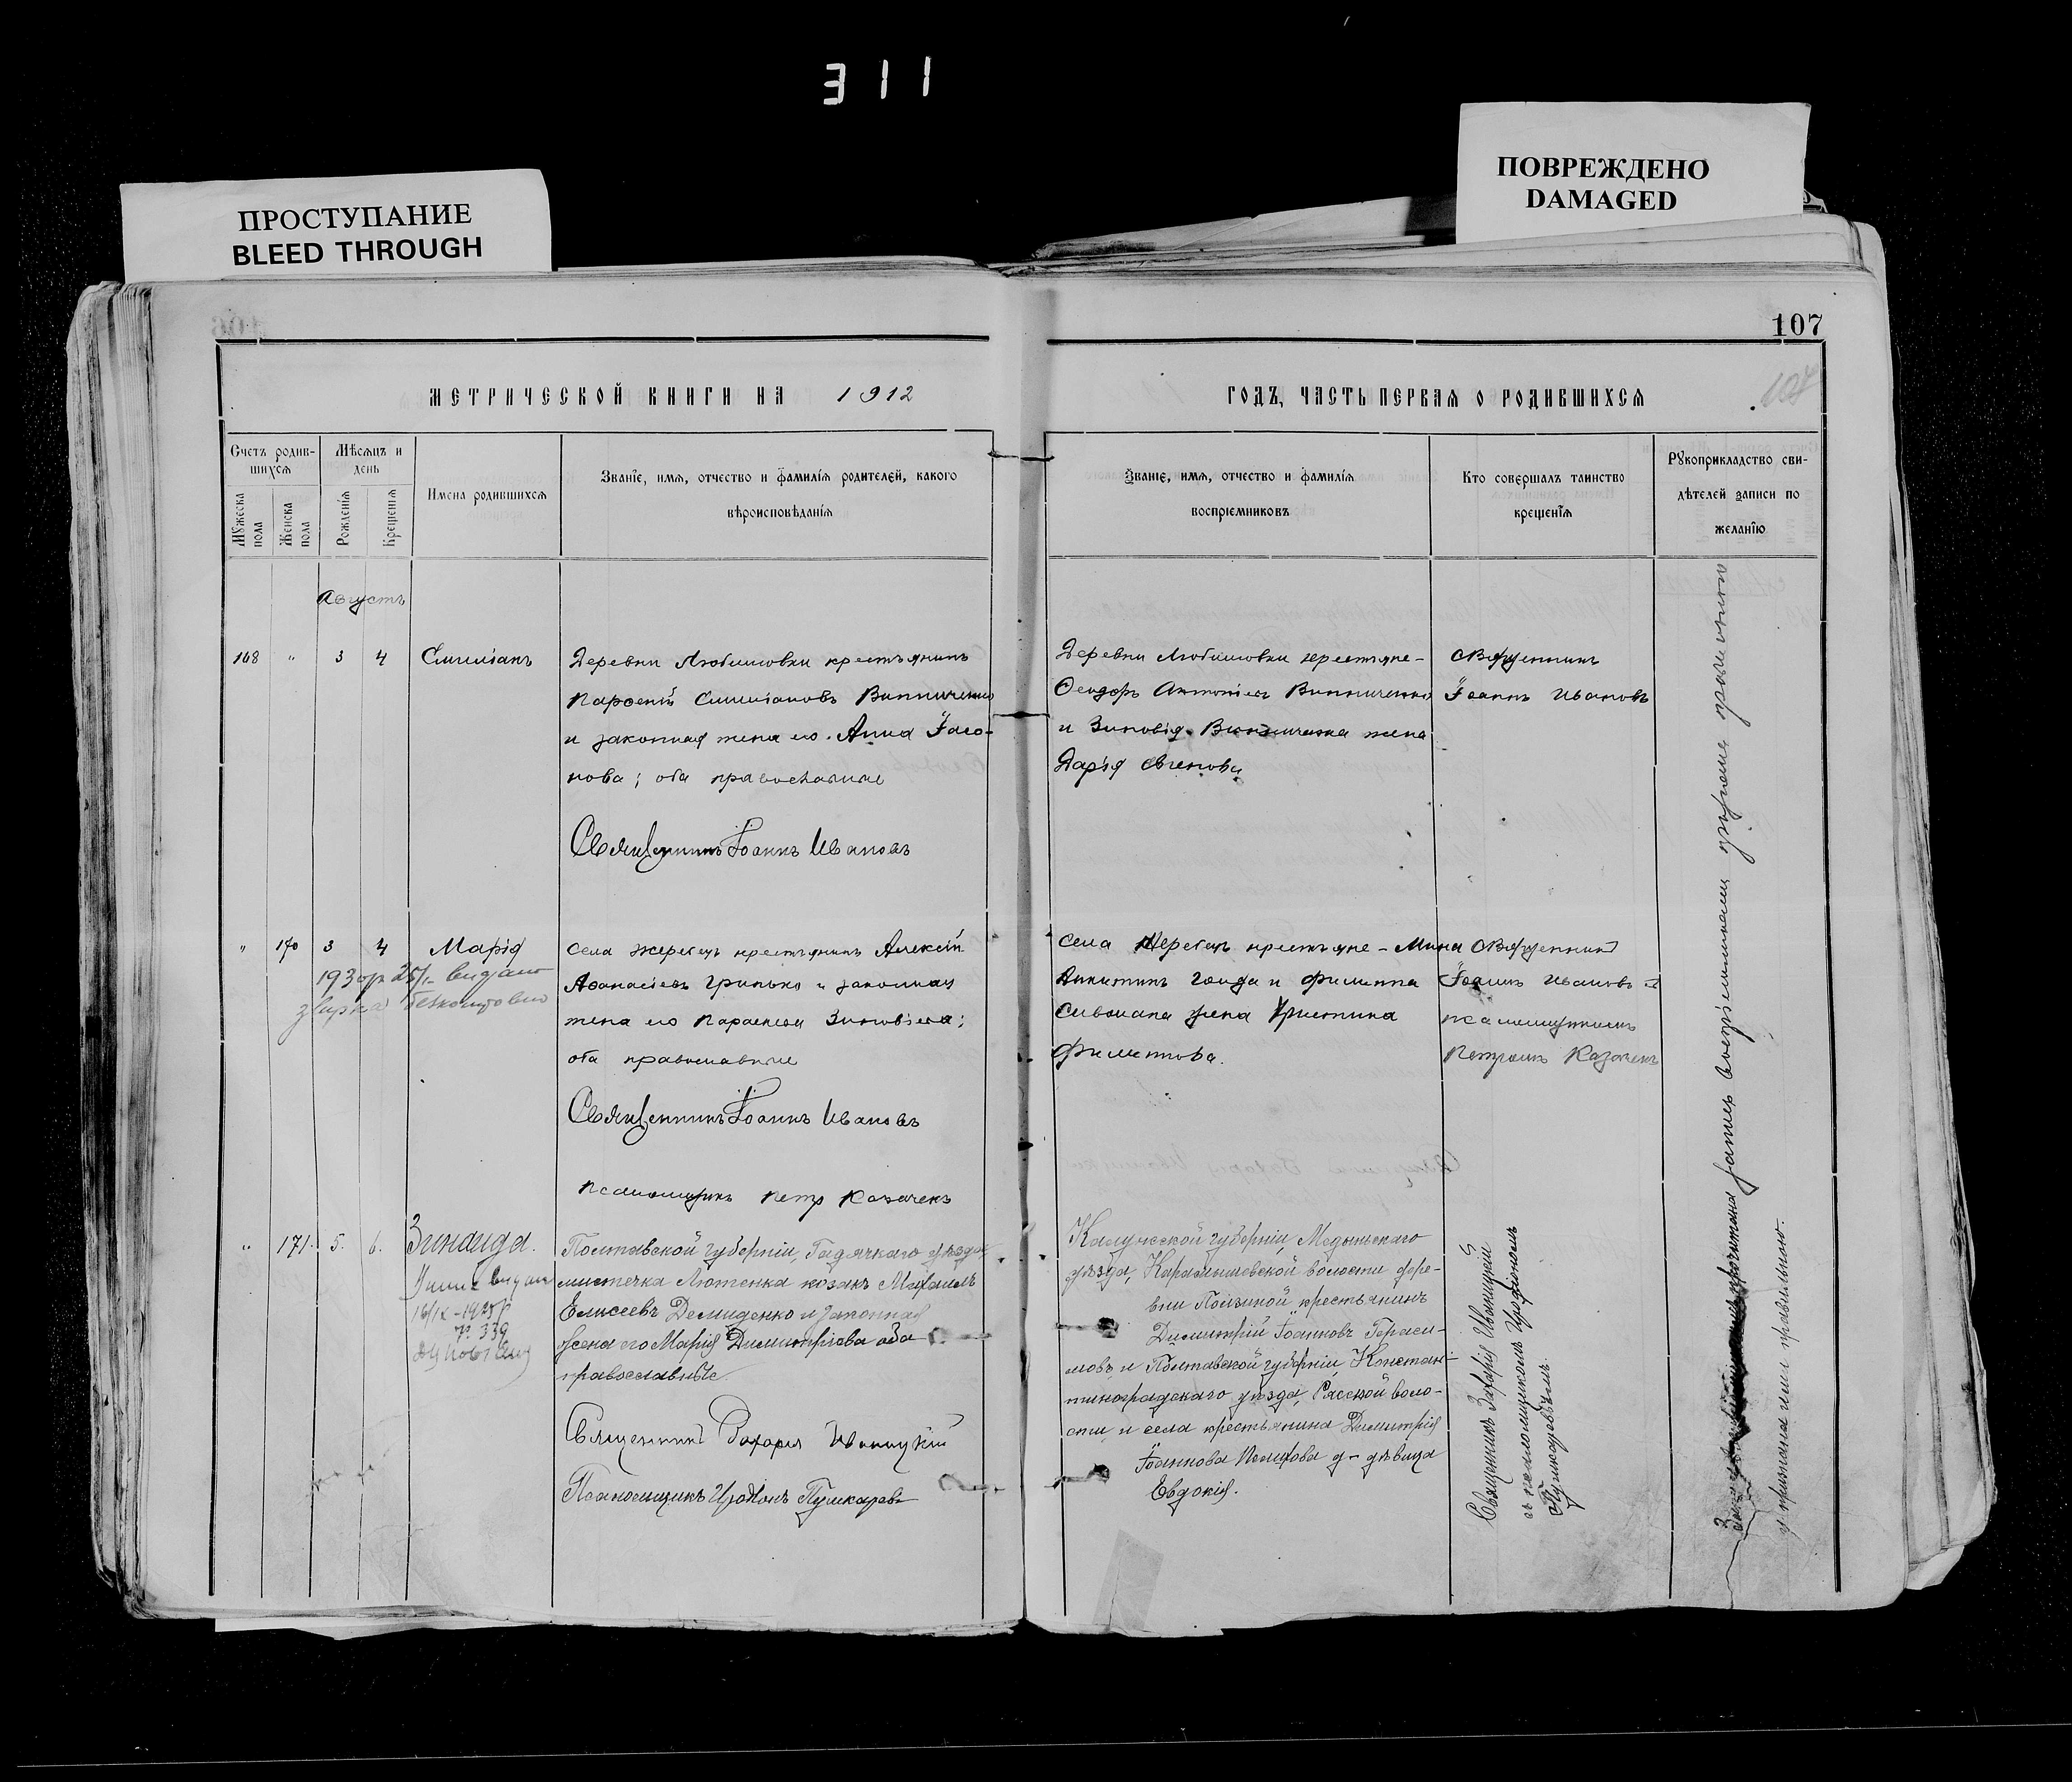 311
ПРОСТУПАНИЕ
BLEED THROUGH
ПОВРЕЖДЕНО
DAMAGED
107
МЕТРИЧЕСКОЙ КНИГИ НА 1912
ГОДЪ, ЧАСТЬ ПЕРВАЯ О РОДИВШИХСЯ
107
Счетъ родив-
шихся
Мужеска пола
Женска пола
Мѣсяцъ и
день
Рожденія
Крещенія
Имена родившихся
Званіе, имя, отчество и фамилія родителей, какого
вѣроисповѣданія
Званіе, имя, отчество и фамилія
воспріемниковъ
Кто совершалъ таинство
крещенія
Рукоприкладство сви-
дѣтелей записи по
желанію
Августъ
168 " 3 4 Емиліанъ
Деревни Любимовки крестьянинъ
Парѳеній Емиліановъ Винниченко
и законная жена его Анна
нова; оба православные
Священникъ Іоаннъ Ивановъ
Деревни Любимовки крестьяне-
Ѳеодоръ Антоніевъ Винниченко
и Зиновія Винниченка жена
Дарія
Священникъ
Іоаннъ Ивановъ
" 170 3 4 Марія
193 р 25/ видано
безкоштовно
Села Жеребецъ крестьянинъ Алексій
Аѳанасіевъ Гринько и законная
жена его Параскева Зиновіева;
оба православные
Священникъ Іоаннъ Ивановъ
Псаломщикъ Петръ Казачекъ
Села Жеребецъ крестьяне - Мина
Никитинъ Гонда и Филиппа
жена Христина
Филиппова.
Священникъ
Іоаннъ Ивановъ съ
псаломщикомъ
Петромъ Казачекъ
" 171. 5. 6. Зинаида.
видан
16/IX - 1925 р
№ 339
Полтавской губерніи, Гадячкаго уѣзда
мистечка Лютенка козакъ Михаилъ
Елисеевъ Демиденко и законная
жена его Марія Димитріева оба
православные.
Священникъ Захарія Ивницкій
Псаломщикъ Иродіонъ Пушкаревъ
Калужской губерніи, Медынскаго
уѣзда, Карамышевской волости дере-
вни крестьянинъ
Димитрій Іоанновъ Гераси-
мовъ и Полтавской губерніи, Констан-
тиноградскаго уѣзда, волo-
сти и села крестьянина Димитрія
Іоаннова д- дѣвица
Евдокія.
Священникъ Захарія Ивницкій
съ псаломщикомъ Иродіономъ
Пушкаревымъ.
прочитана
и признана ими правильною.